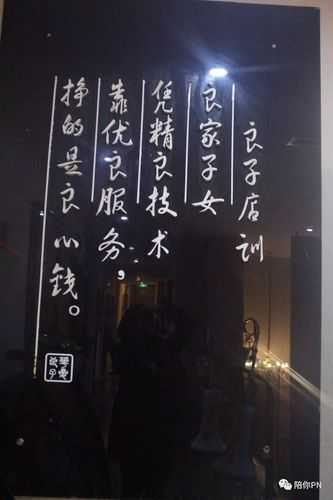 良子店训
良家子女
凭精良技术
靠优良服务，
挣的是良心錢。
陪你PN